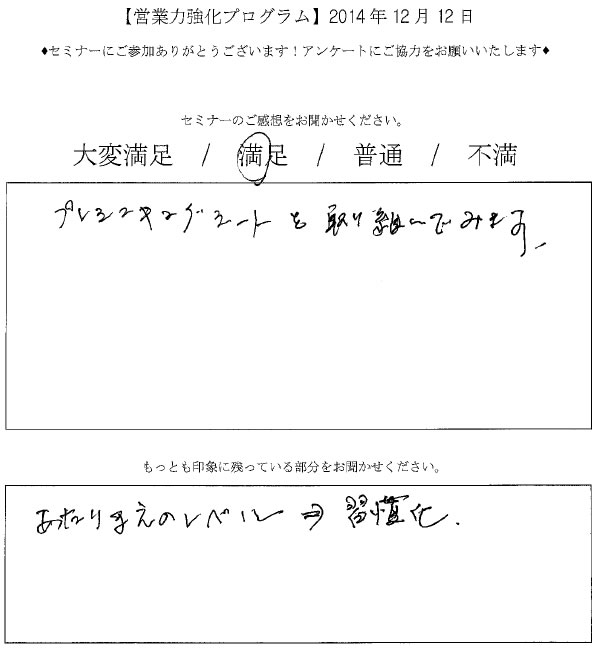 【営業力強化プログラム】2014年12月12日
♦セミナーにご参加ありがとうございます！アンケートにご協力をお願いいたします♦
セミナーのご感想をお聞かせください。
大変満足 / 満足 / 普通 / 不満
プレシンキングシートを取り組んでみます。
もっとも印象に残っている部分をお聞かせください。
あたりまえのレベル ⇒ 習慣化.